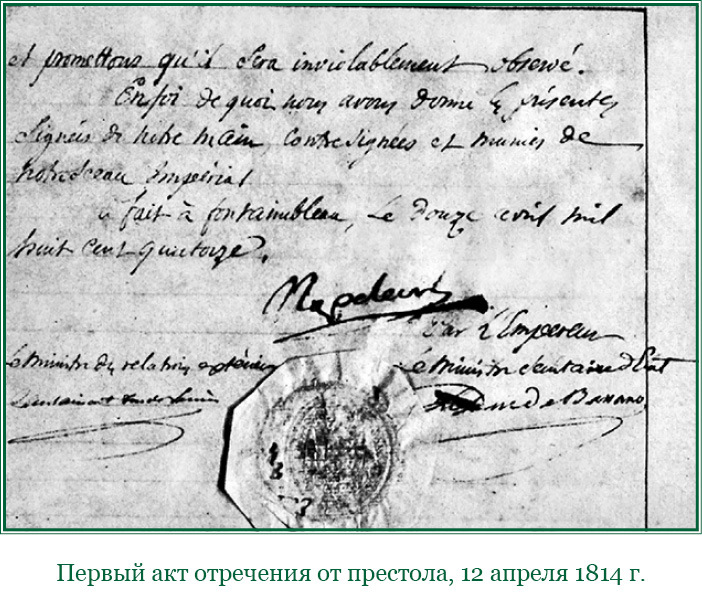 et promettons qu'il sera inviolablement observé.
En foi de quoi nous avons donné les présentes
signées de notre main, contresignées et munies de
notre sceau impérial
fait à fontainebleau, le douze avril mil
huit cent quatorze.
Napoleon
Par l'Empereur
le Ministre des relations extérieures
le Ministre secretaire d'Etat
duc de Bassano
Первый акт отречения от престола, 12 апреля 1814 г.